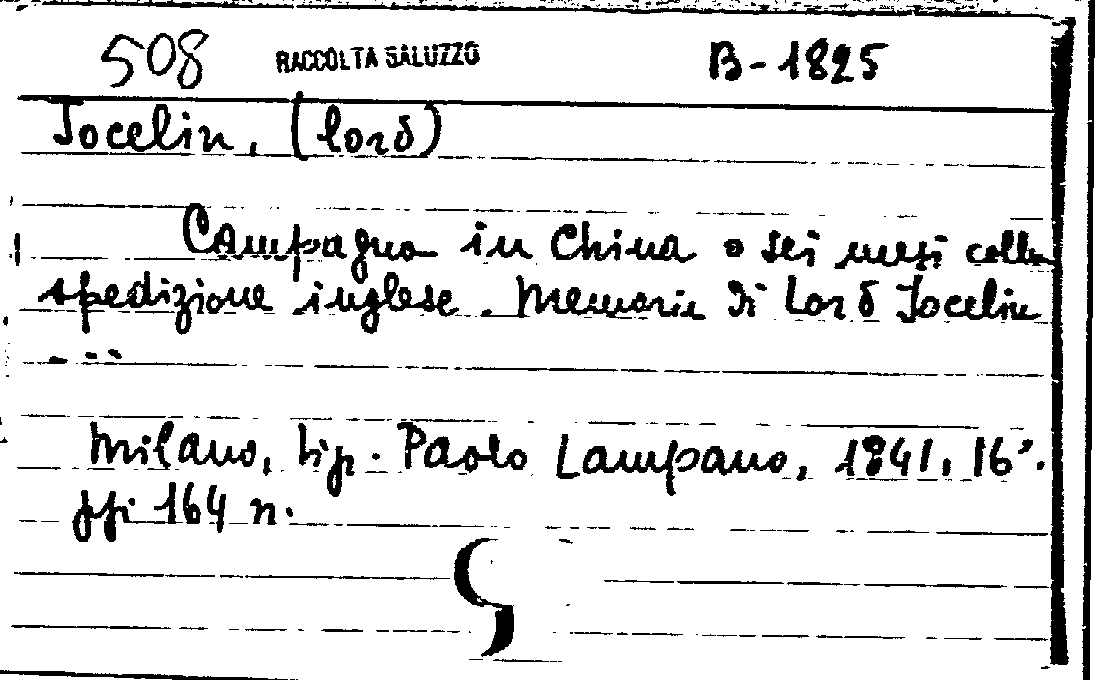 508 RACCOLTA SALUZZO B-1825
Jocelin, (lord)
Campagna in China o sei mesi colla
spedizione inglese. Memorie di Lord Jocelin
...
Milano, tip. Paolo Lampano, 1841, 16°.
ppi 164 n.